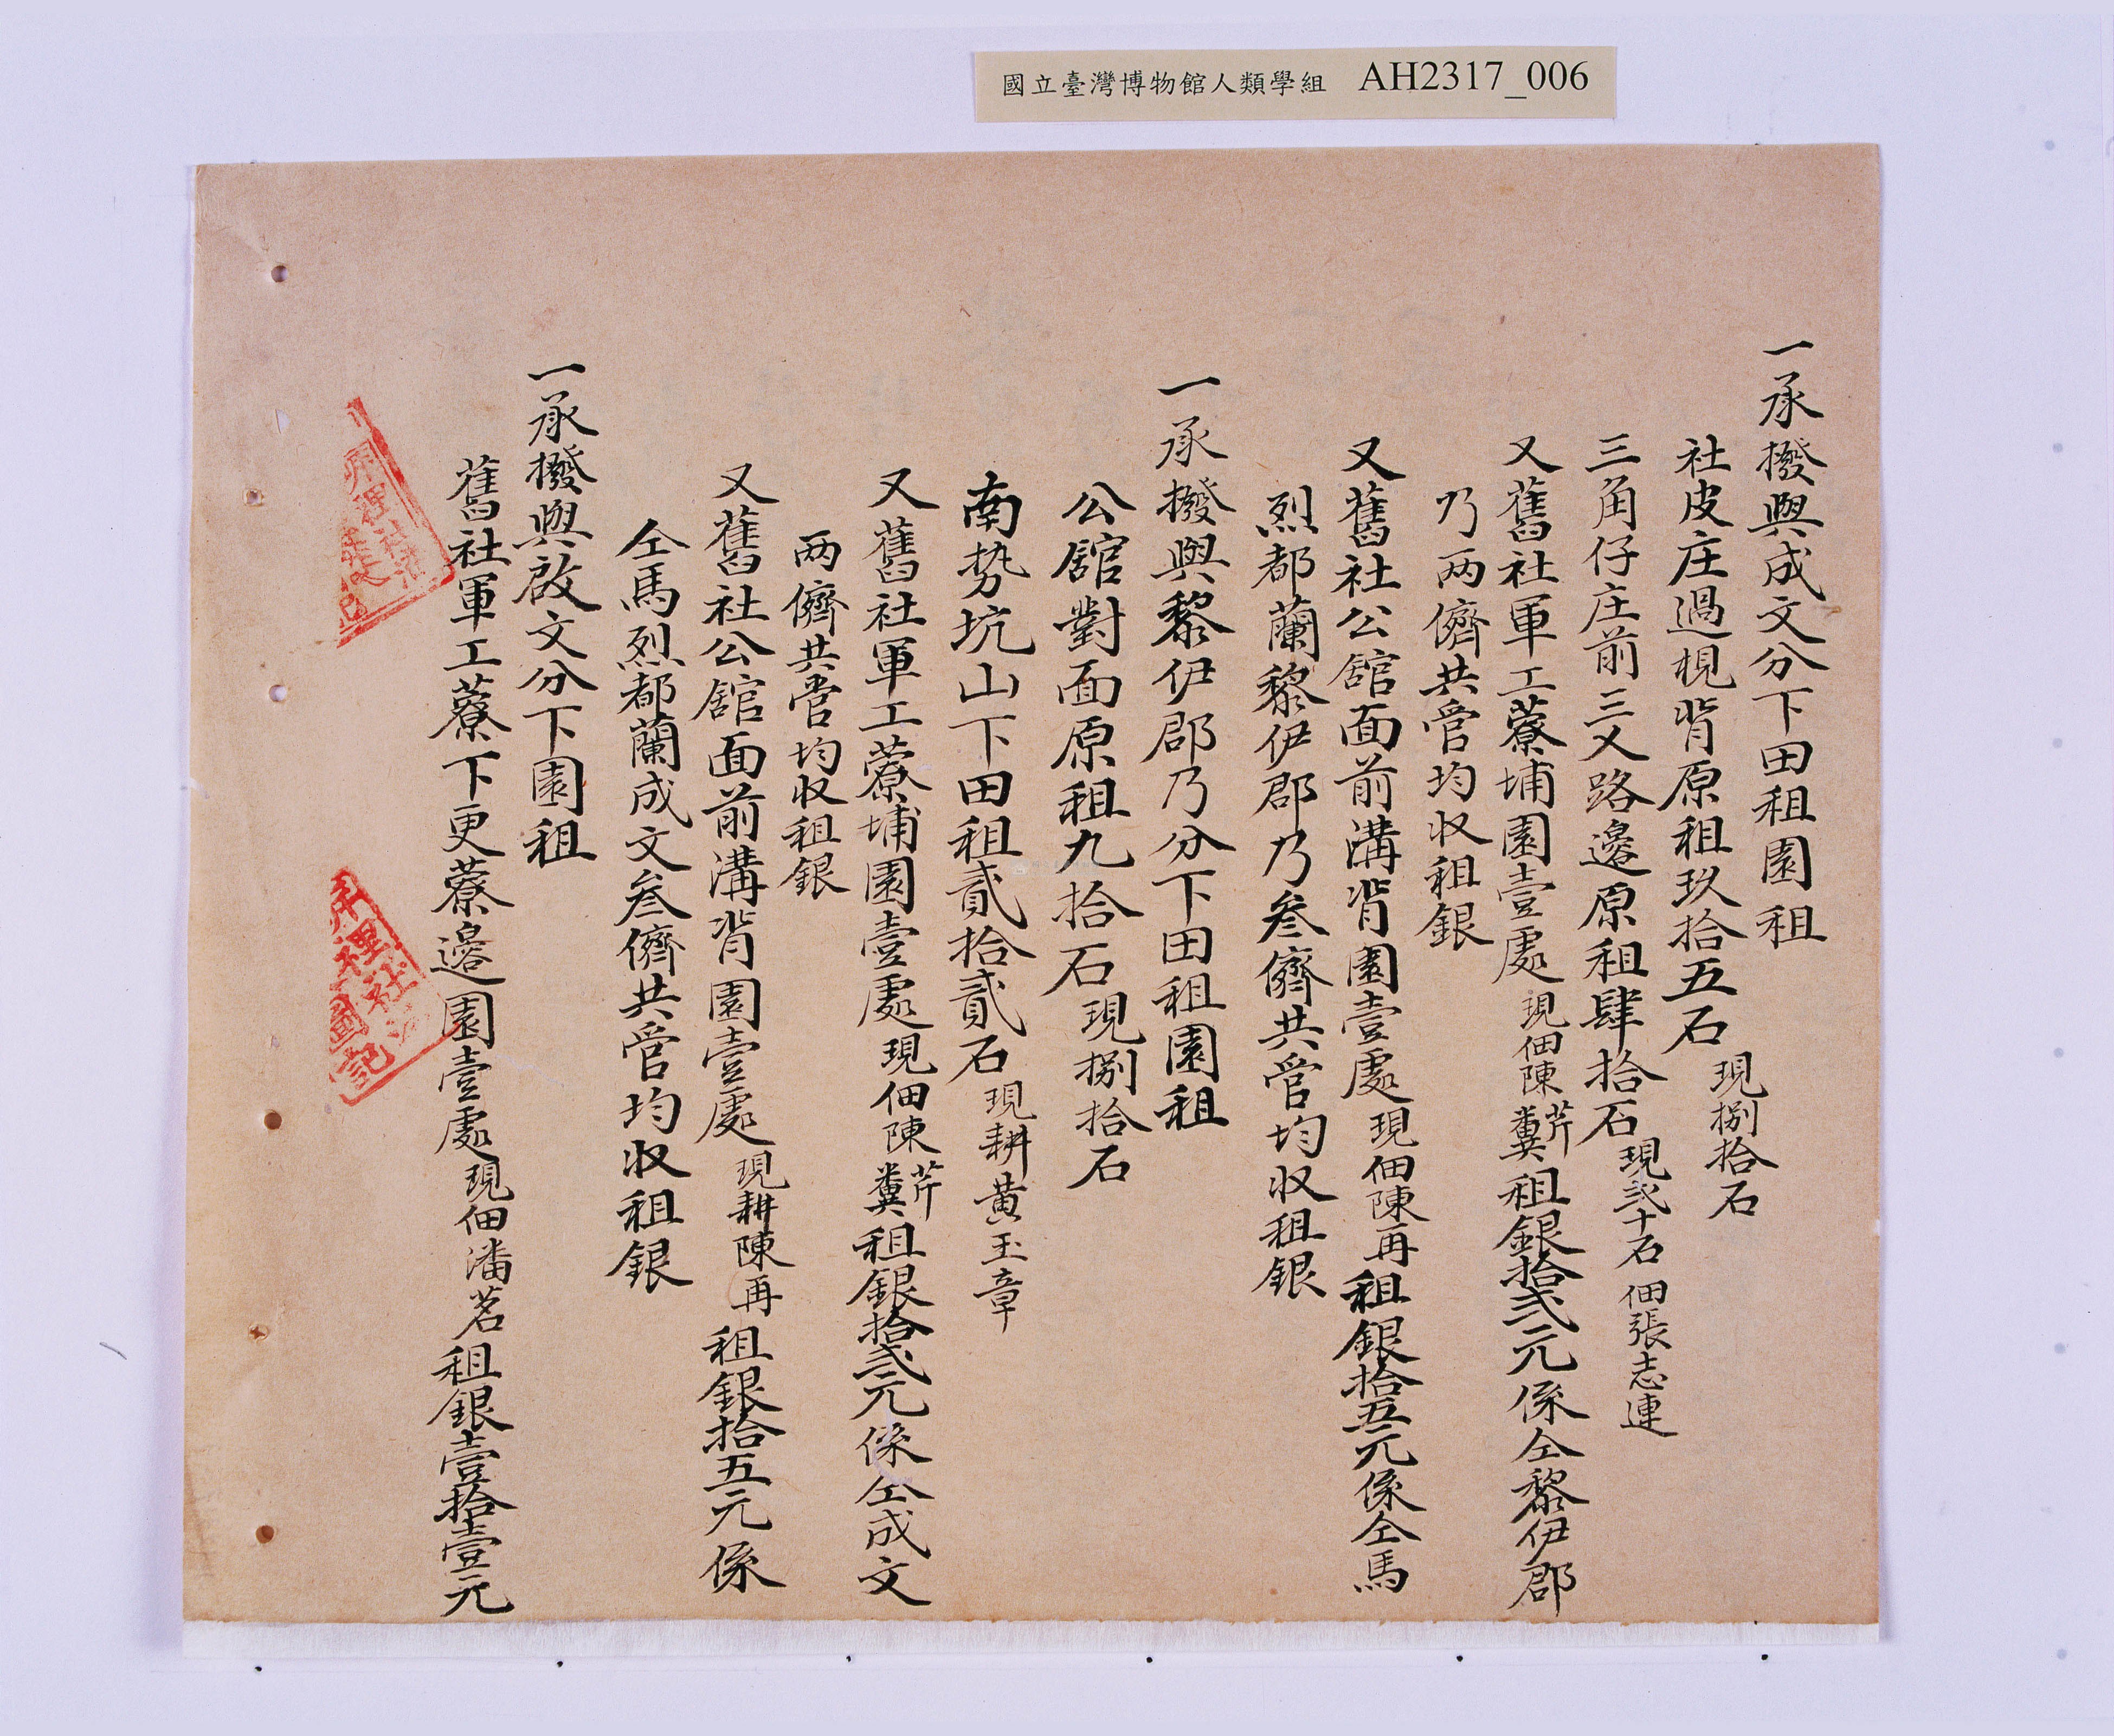 國立臺灣博物館人類學組 AH2317_006
一承撥與成文分下田租園租
社皮庄過梘背原租玖拾五石 現捌拾石
三角仔庄前三叉路邊原租肆拾石 現弍十石 佃張志連
又舊社軍工藔埔園壹處 現佃陳芹糞 租銀拾弍元 係仝黎伊郡
乃兩儕共管均收租銀
又舊社公舘面前溝背園壹處 現佃陳再 租銀拾五元 係仝馬
烈都蘭黎伊郡乃叁儕共管均收租銀
一承撥與黎伊郡乃分下田租園租
公舘對面原租九拾石 現捌拾石
南勢坑山下田租貳拾貳石 現耕黃玉章
又舊社軍工藔埔園壹處 現佃陳芹糞 租銀拾弍元 係仝成文
兩儕共管均收租銀
又舊社公舘面前溝背園壹處 現耕陳再 租銀拾五元 係
仝馬烈都蘭成文叁儕共管均收租銀
一承撥與啟文分下園租
舊社軍工藔下更藔邊園壹處 現佃潘茗 租銀壹拾壹元
岸裡社
記
岸裡社
圖記